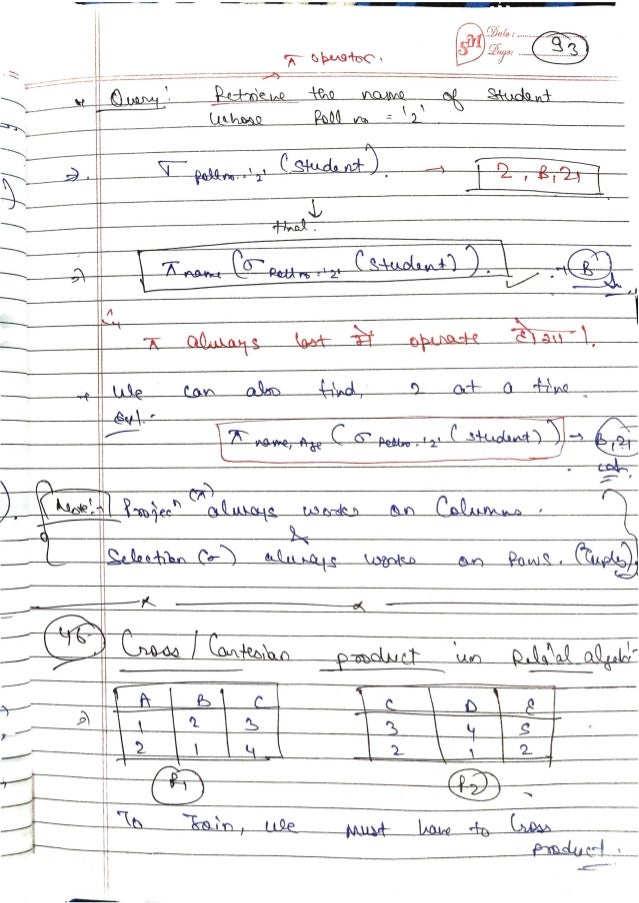 Date:
SM Page: 93
π operator.
* Query: Retrieve the name of student
whose Roll no = '2'
⇒. σ Rollno.='2' (Student). → 2, B, 21
↓
final.
⇒ π name (σ Rollno.='2' (Student)). ✓ → B
π always last में operate होगा।
* We can also find, 2 at a time.
Ex!-
π name, Age (σ Rollno.='2' (student)) → B, 21
Note:- Projecⁿ (π) always works on Columns.
&
Selection (σ) always works on Rows. (Tuples)
46. Cross / Cartesian product in Rela'al algebr-
⇒ A B C C D E
1 2 3 3 4 5
2 1 4 2 1 2
R1 R2
To Join, we must have to Cross
product.